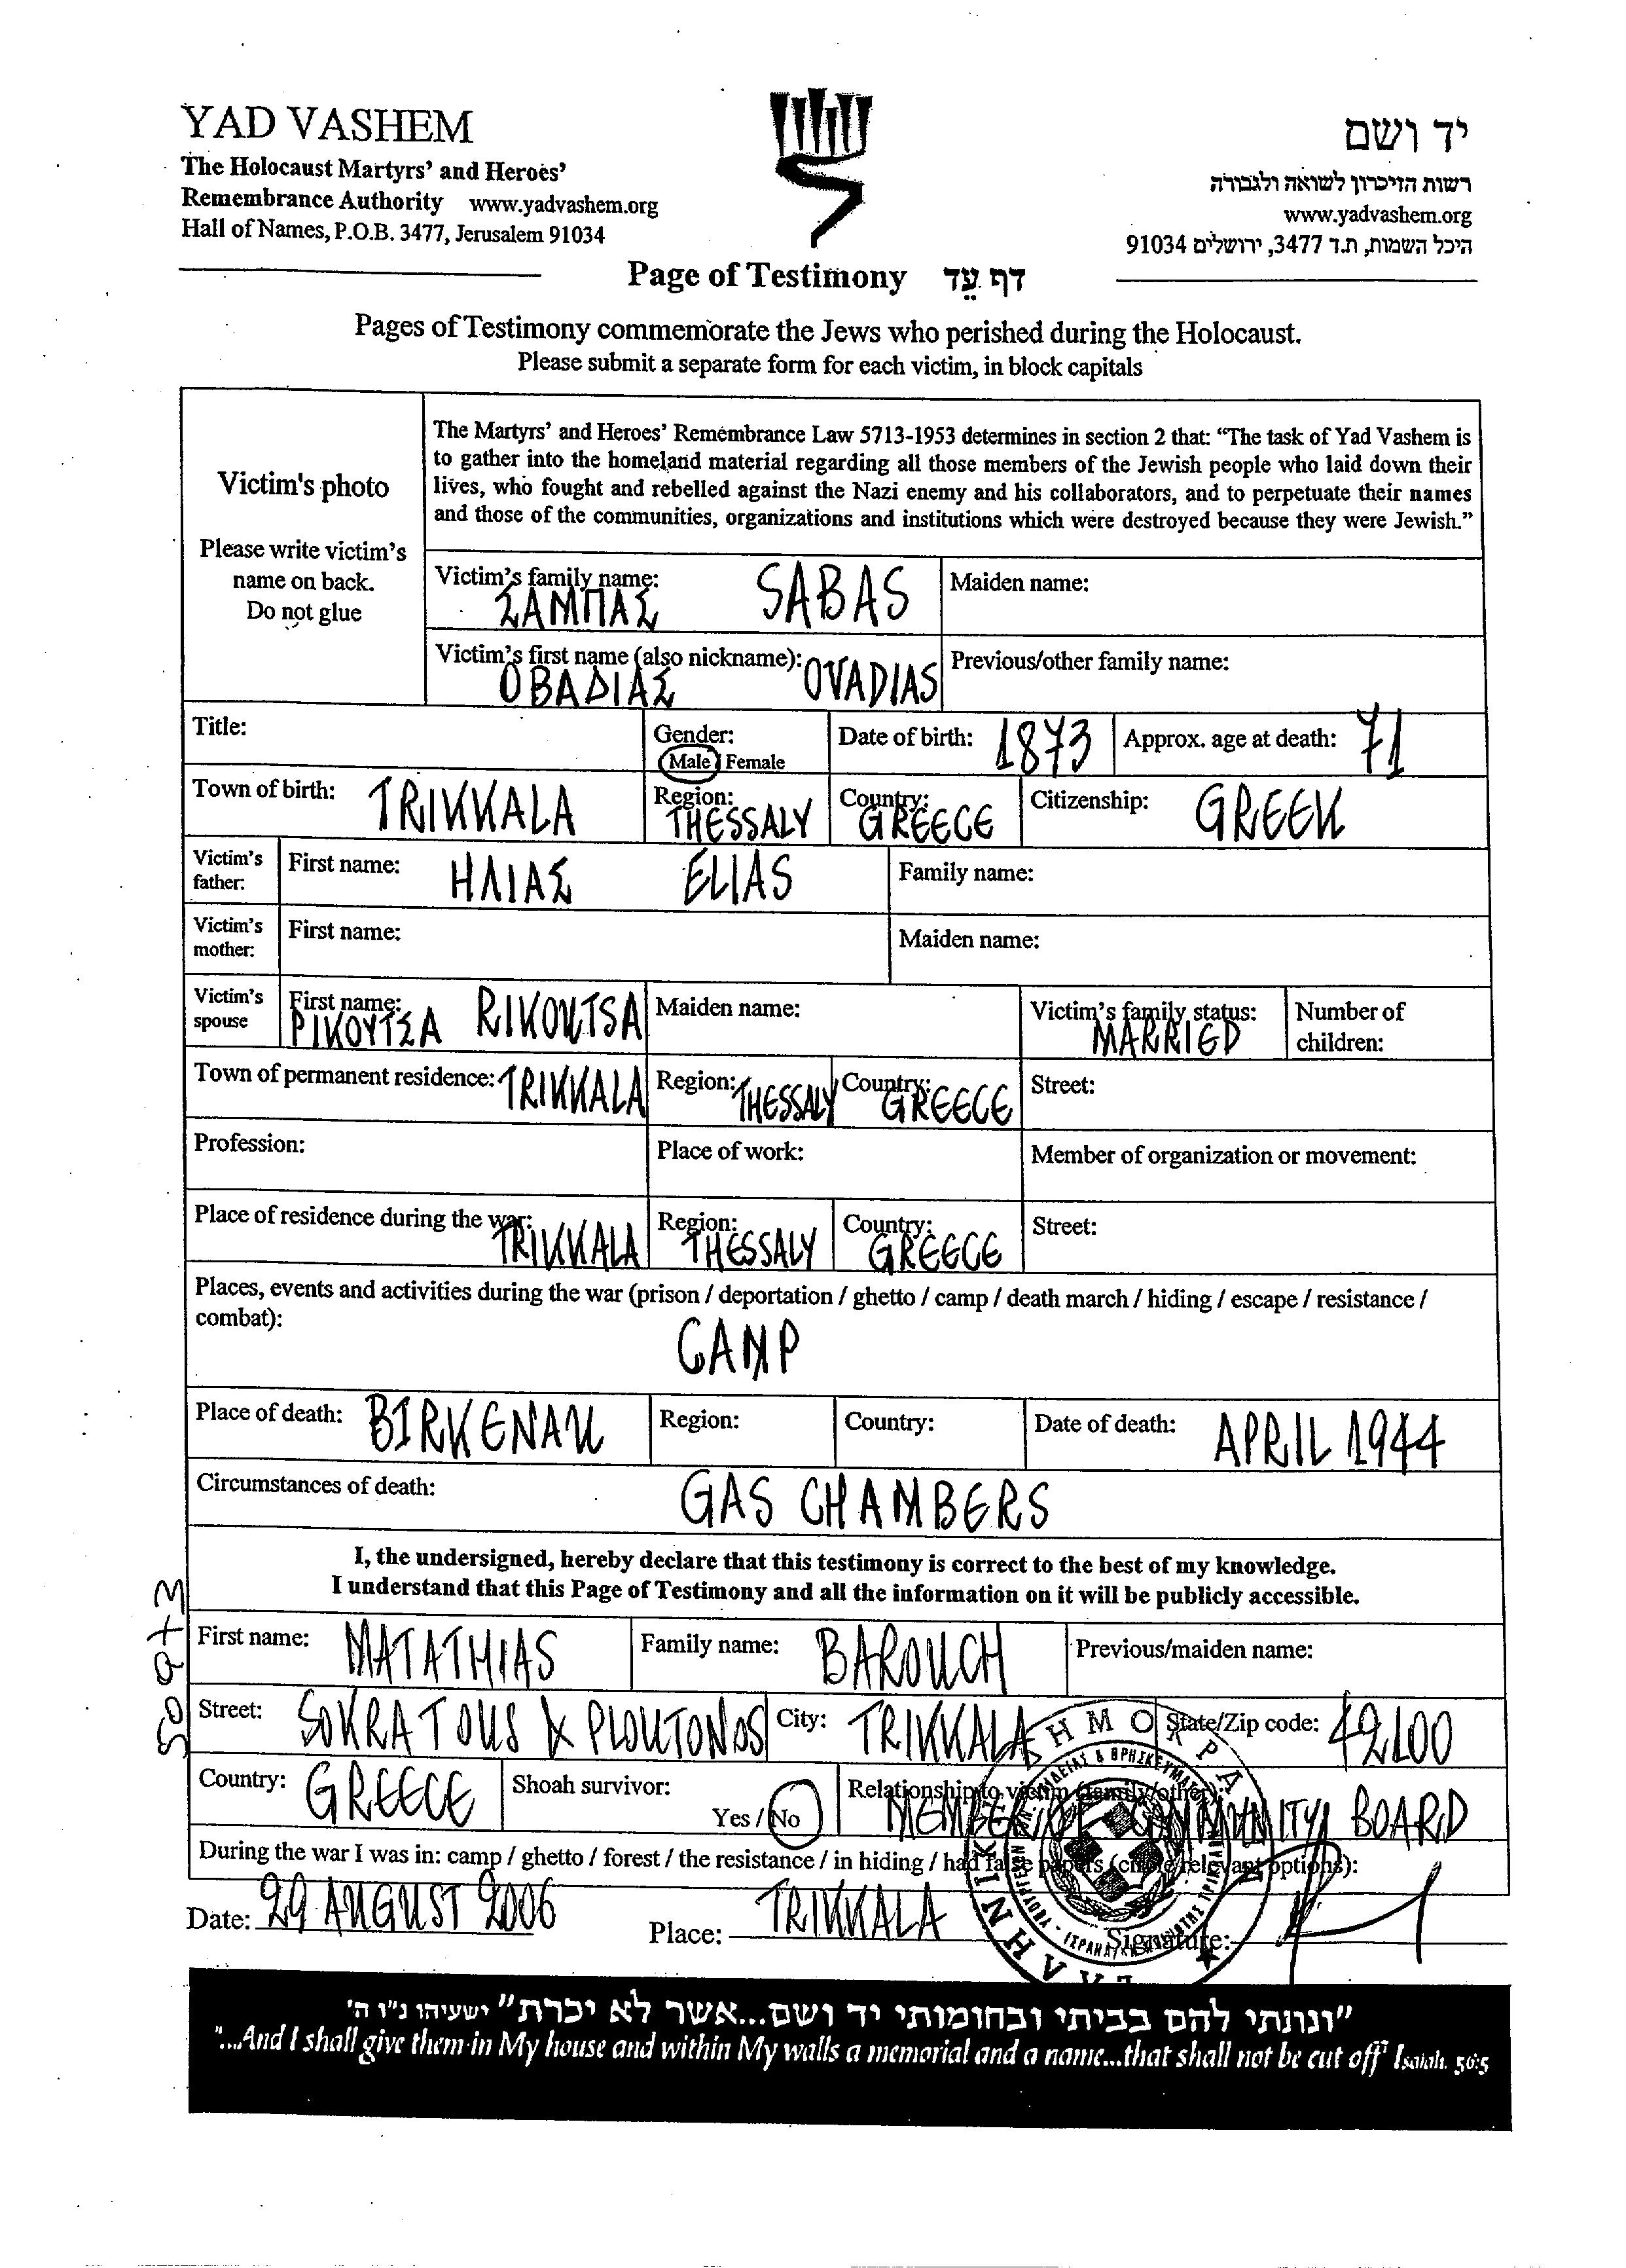 YAD VASHEM
The Holocaust Martyrs' and Heroes'
Remembrance Authority www.yadvashem.org
Hall of Names, P.O.B. 3477, Jerusalem 91034
יד ושם
רשות הזיכרון לשואה ולגבורה
www.yadvashem.org
היכל השמות, ת.ד 3477, ירושלים 91034
Page of Testimony דף עד
Pages of Testimony commemorate the Jews who perished during the Holocaust.
Please submit a separate form for each victim, in block capitals
Victim's photo
Please write victim's
name on back.
Do not glue
The Martyrs' and Heroes' Remembrance Law 5713-1953 determines in section 2 that: "The task of Yad Vashem is
to gather into the homeland material regarding all those members of the Jewish people who laid down their
lives, who fought and rebelled against the Nazi enemy and his collaborators, and to perpetuate their names
and those of the communities, organizations and institutions which were destroyed because they were Jewish."
Victim's family name: ΣΑΜΠΑΣ SABAS Maiden name:
Victim's first name (also nickname): ΟΒΑΔΙΑΣ OVADIAS Previous/other family name:
Title: Gender: Male Female Date of birth: 1873 Approx. age at death: 71
Town of birth: TRIKKALA Region: THESSALY Country: GREECE Citizenship: GREEK
Victim's father: First name: ΗΛΙΑΣ ELIAS Family name:
Victim's mother: First name: Maiden name:
Victim's spouse First name: ΡΙΚΟΥΤΣΑ RIKOUTSA Maiden name: Victim's family status: MARRIED Number of children:
Town of permanent residence: TRIKKALA Region: THESSALY Country: GREECE Street:
Profession: Place of work: Member of organization or movement:
Place of residence during the war: TRIKKALA Region: THESSALY Country: GREECE Street:
Places, events and activities during the war (prison / deportation / ghetto / camp / death march / hiding / escape / resistance /
combat):
CAMP
Place of death: BIRKENAU Region: Country: Date of death: APRIL 1944
Circumstances of death: GAS CHAMBERS
I, the undersigned, hereby declare that this testimony is correct to the best of my knowledge.
I understand that this Page of Testimony and all the information on it will be publicly accessible.
First name: MATATHIAS Family name: BAROUCH Previous/maiden name:
Street: SOKRATOUS & PLOUTONOS City: TRIKKALA State/Zip code: 42100
Country: GREECE Shoah survivor: Yes / No Relationship to victim (family/other): MEMBER OF COMMUNITY BOARD
During the war I was in: camp / ghetto / forest / the resistance / in hiding / had false papers (circle relevant options):
Date: 29 AUGUST 2006 Place: TRIKKALA Signature:
"ונתתי להם בביתי ובחומותי יד ושם...אשר לא יכרת" ישעיהו נ"ו ה'
"...And I shall give them in My house and within My walls a memorial and a name...that shall not be cut off" Isaiah. 56:5